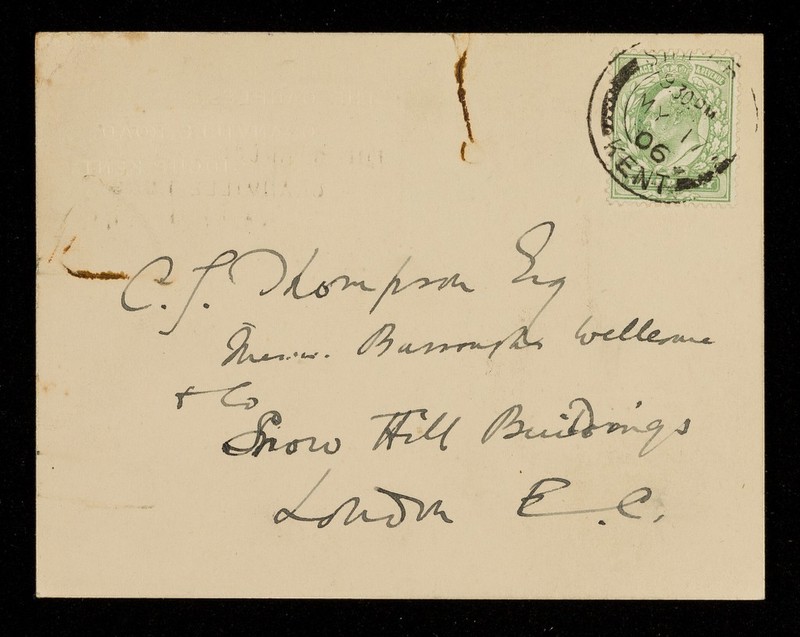 9 30 PM
MY 17
06
KENT
C. J. Thompson Esq
Messrs. Burroughs Wellcome
& Co
Snow Hill Buildings
London E.C.